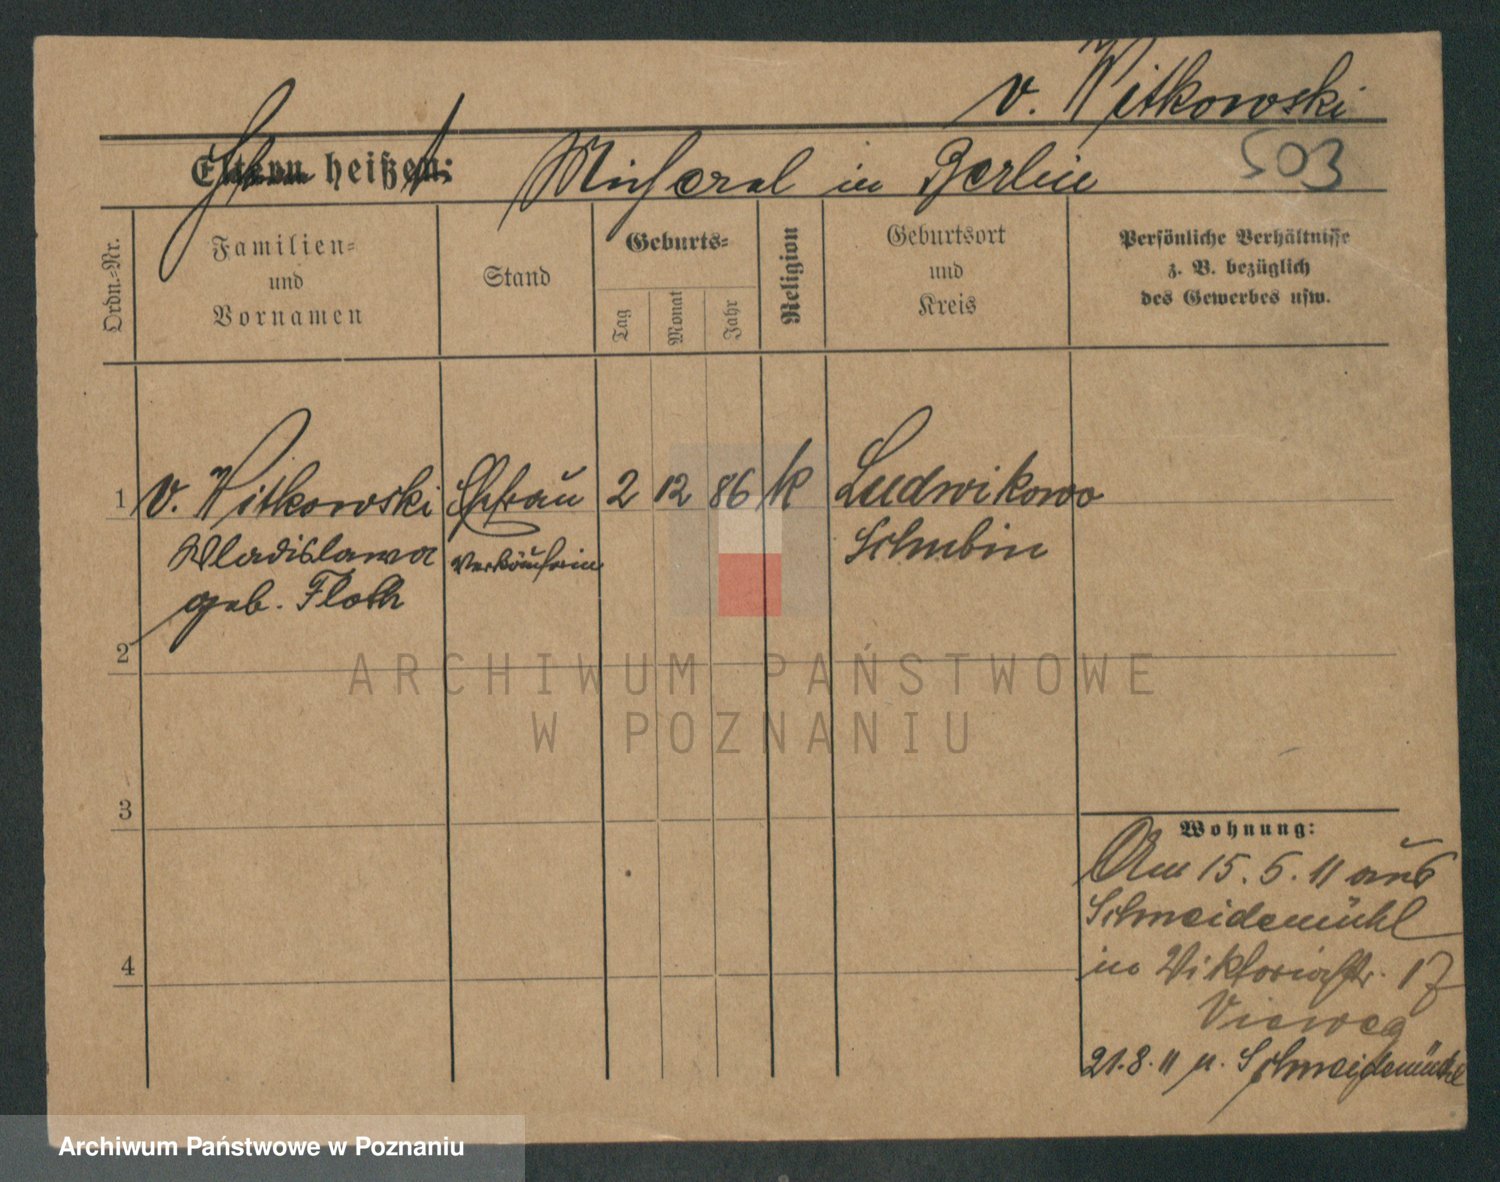 v. Witkowski
503
Eltern heißen: Michael in Berlin
Ordn.-Nr.
Familien-
und
Vornamen
Stand
Geburts-
Tag
Monat
Jahr
Religion
Geburtsort
und
Kreis
Persönliche Verhältnisse
z. B. bezüglich
des Gewerbes usw.
1 v. Witkowski Ehefrau 2 12 86 k Ludwikowo
Wladislawa Verkäuferin Schubin
geb. Floth
2
3
4
Wohnung:
Am 15.5.11 aus
Schneidemühl
in Viktoriastr. 17
Vieweg
21.8.11 n. Schneidemühl
ARCHIWUM PAŃSTWOWE
W POZNANIU
Archiwum Państwowe w Poznaniu